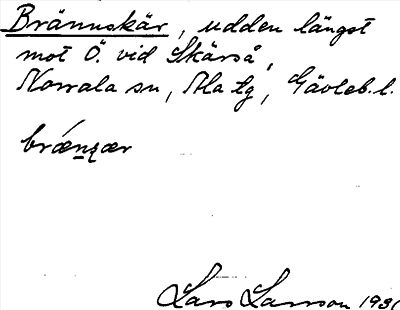 Brännskär, udden längst
mot Ö. vid Skärså,
Norrala sn, Ala tg, Gävleb. l.
Lars Larsson 1931